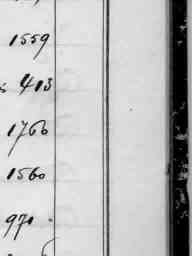 1559
s 413
1760
1560
971